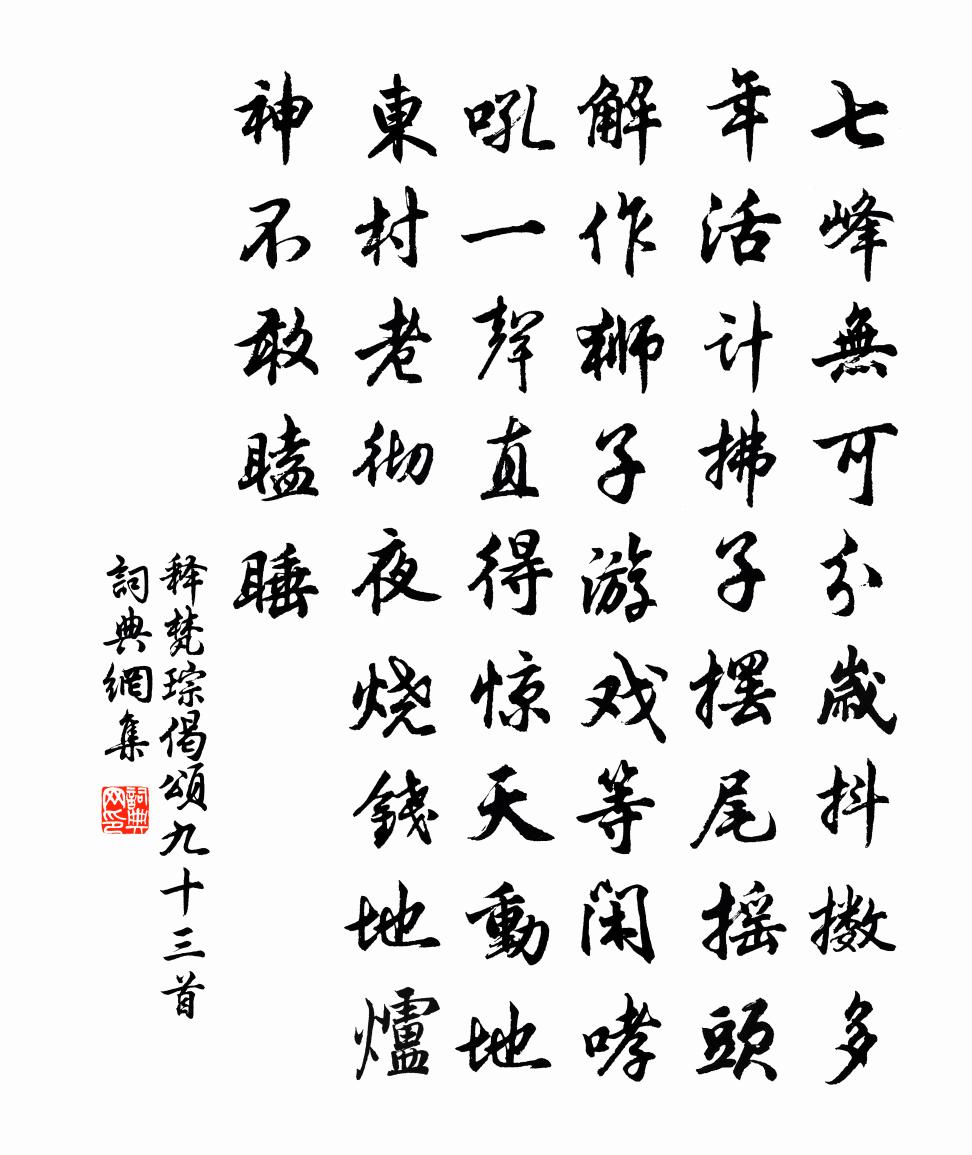 七峰無可分歲抖擻多
年活計拂子擺尾摇頭
解作獅子游戏等闲哮
吼一聲直得惊天動地
東村老彻夜烧錢地爐
神不敢瞌睡
释梵琮偈頌九十三首
詞典網集
詞典网印